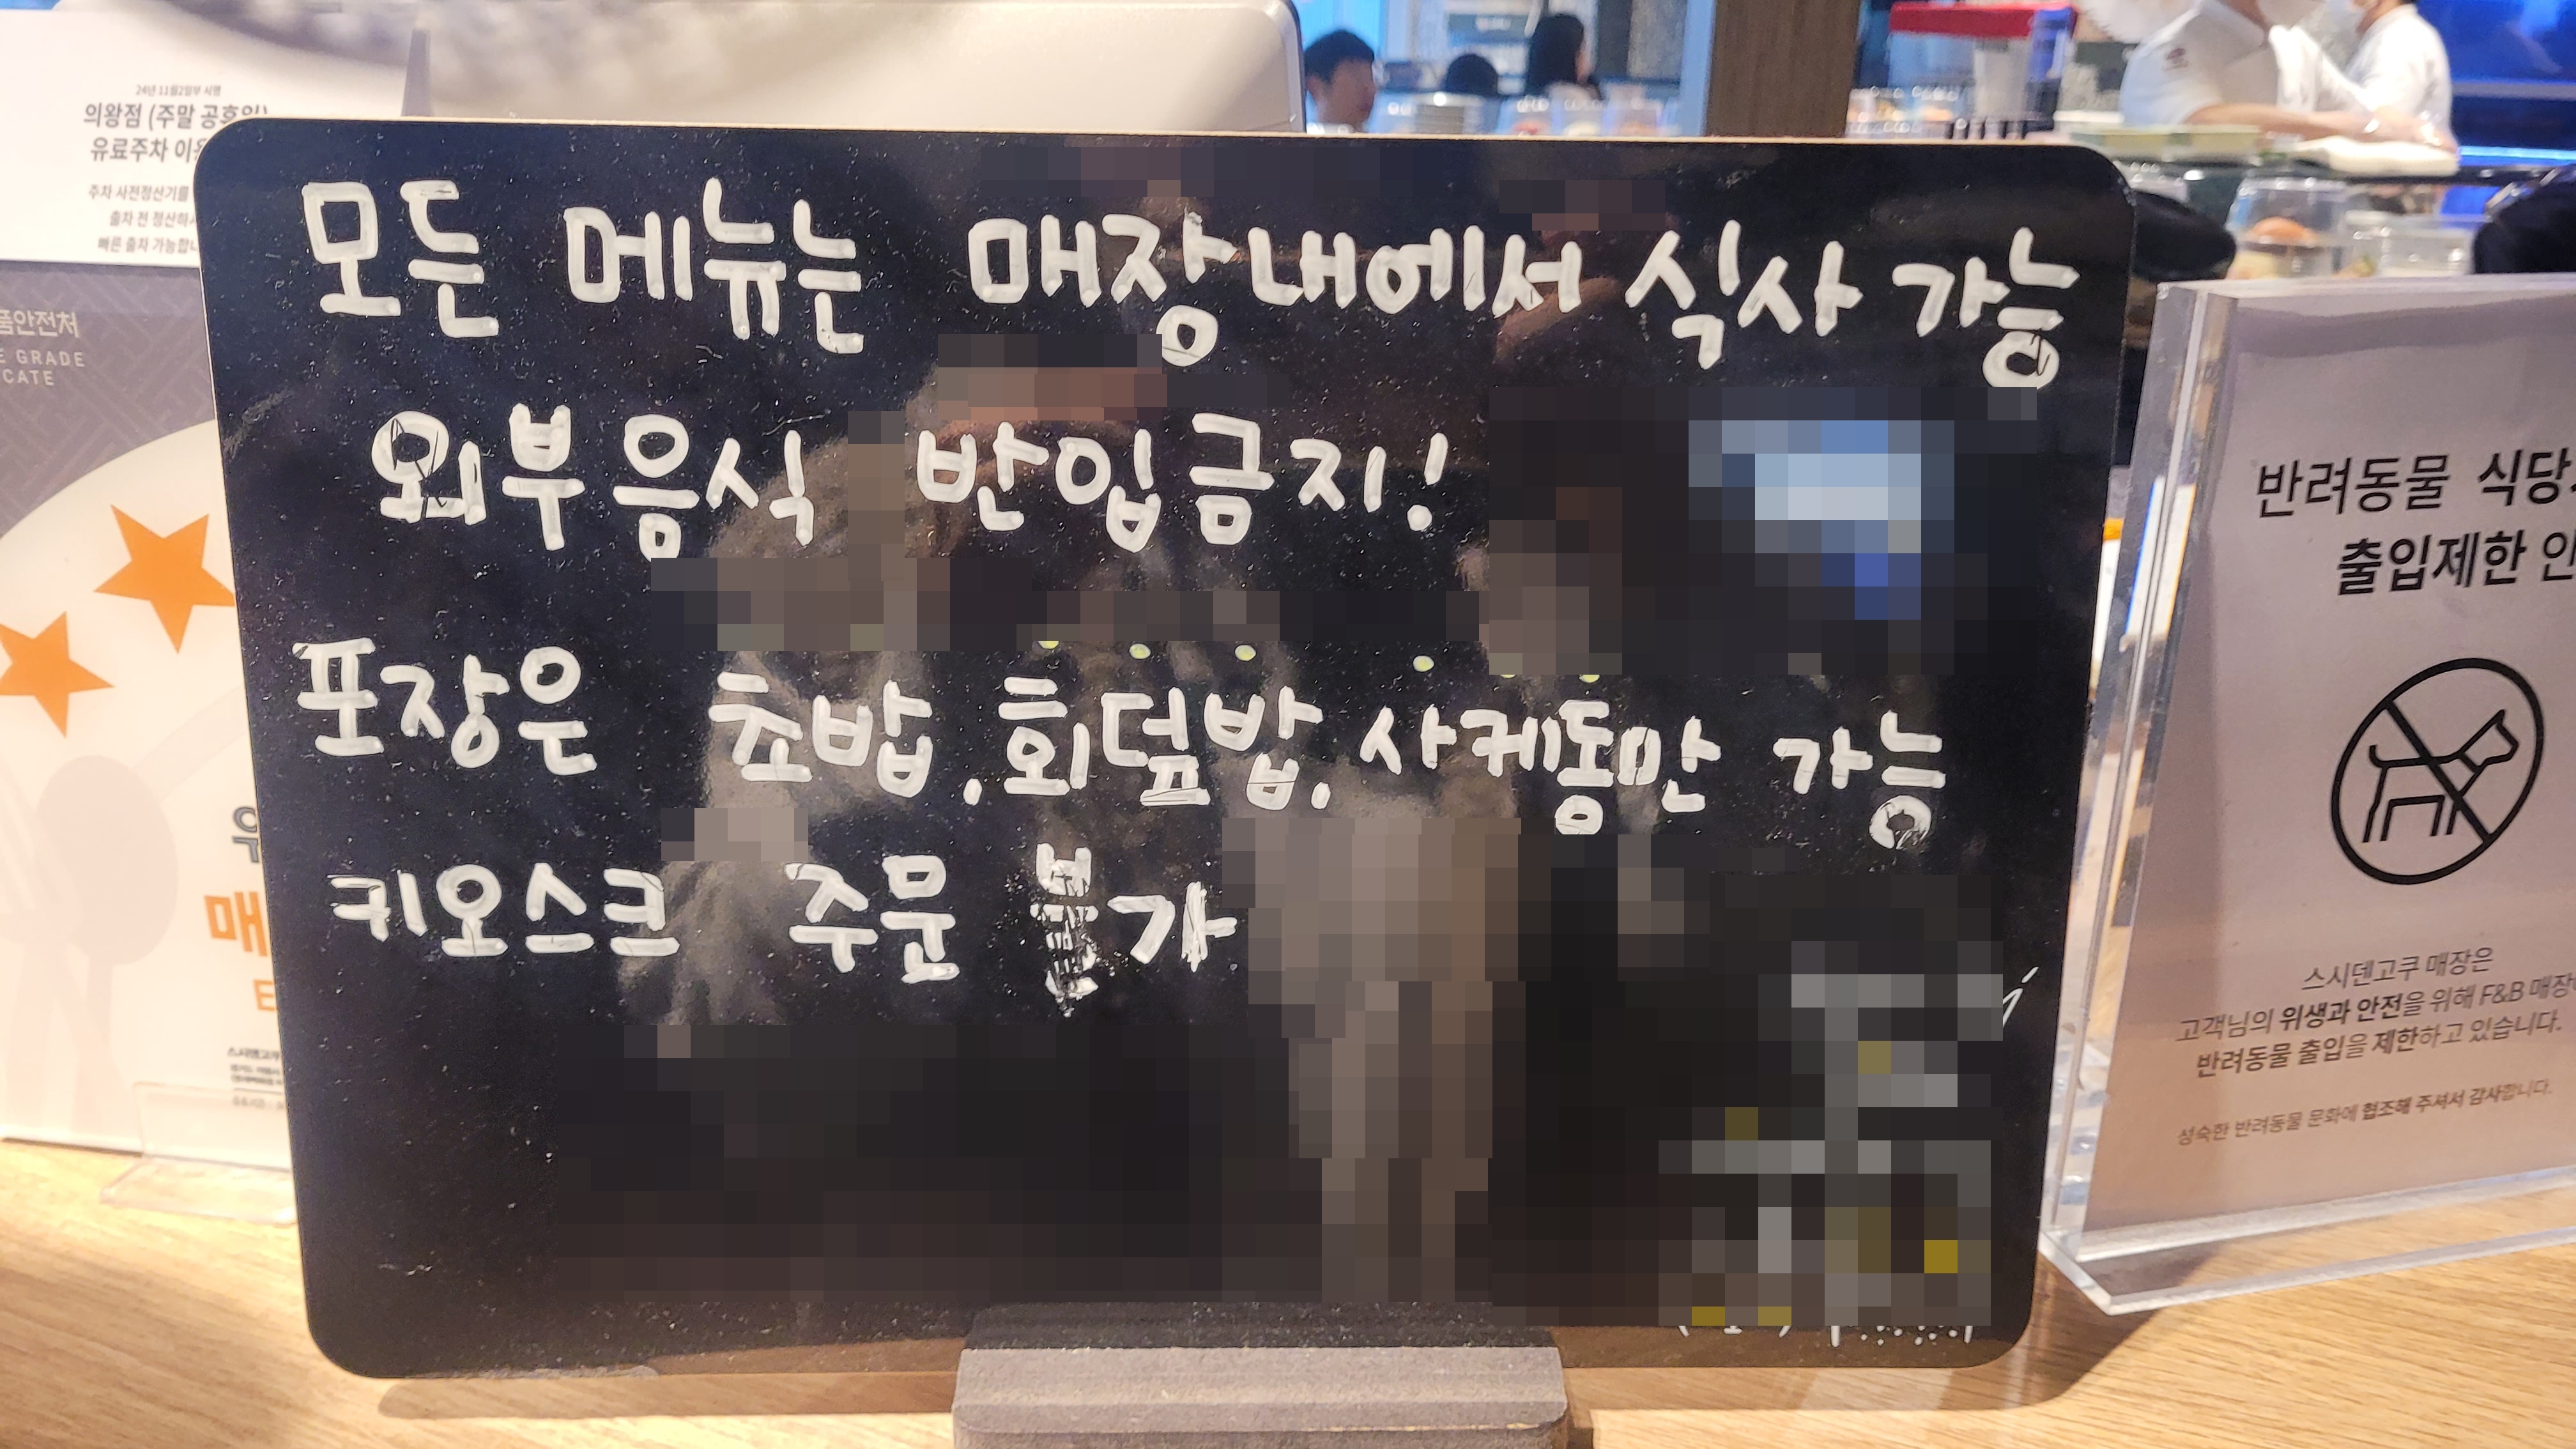 24년 11월2일부 시행
의왕점 (주말 공휴일)
유료주차
주차 사전정산기를
출차 전
빠른 출차
품안전처
E GRADE
CATE
모든 메뉴는 매장내에서 식사 가능
외부음식 반입금지!
포장은 초밥, 회덮밥, 사케동만 가능
키오스크 주문 불가
반려동물 식당
출입제한
스시덴고쿠 매장은
고객님의 위생과 안전을 위해 F&B 매장
반려동물 출입을 제한하고 있습니다.
성숙한 반려동물 문화에 협조해 주셔서 감사합니다.